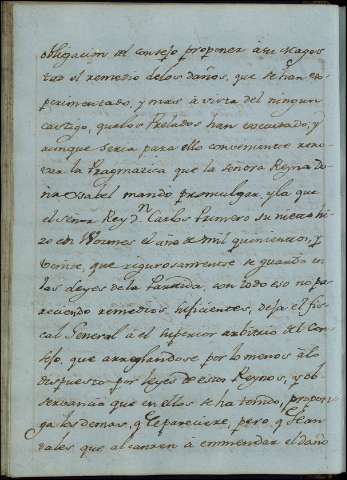 obligacion del consejo proponer à su Mages
tad el remedio de los daños, que se han ex
perimentado, y mas à vista del ningun
castigo, que los Prelados han executado; y
aunque seria para ello conveniente reno
var la Pragmatica que la señora Reyna Do
ña Ysabel mandó promulgar, y la que
el señor Rey Dn Carlos Primero su nieto hi
zo en Wormes el año de mil quinientos, y
veinte, que rigurosamente se guarda en
las Leyes de la Partida, con todo eso no pa
reciendo remedios suficientes, deja el fis
cal General à el superior arbitrio del Con
sejo, que arreglandose por lo menos à lo
dispuesto por leyes de estos Reynos, y ob
servancia que en ellos se ha tenido, propon
ga los demas, q le pareciere, pero q sean
tales, que alcanzen à enmendar el daño